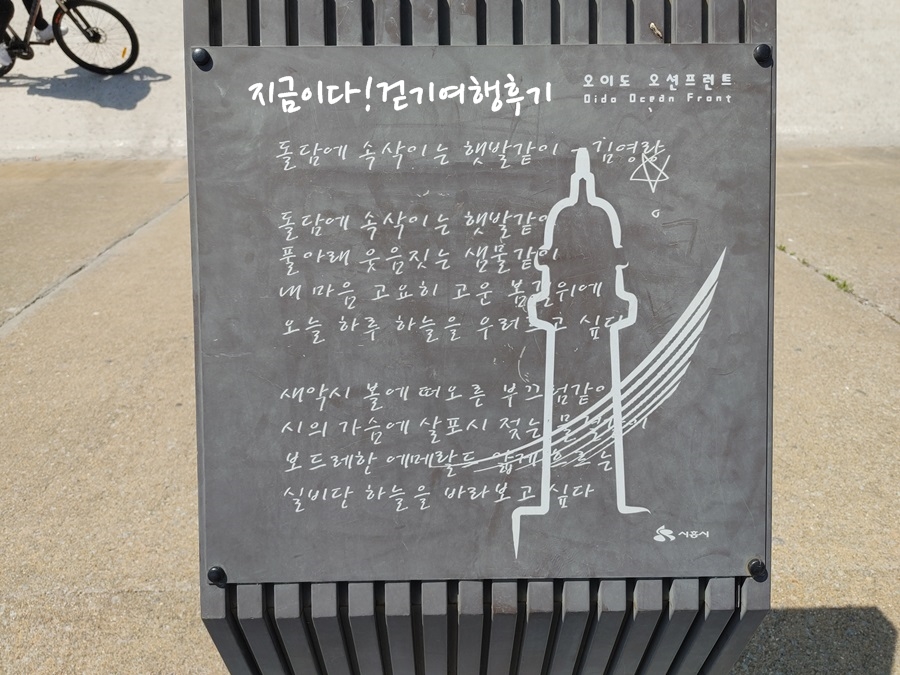 지금이다!걷기여행후기
오이도 오션프런트
Oido Ocean Front
돌담에 속삭이는 햇발같이 - 김영랑
돌담에 속삭이는 햇발같이
풀아래 웃음짓는 샘물같이
내 마음 고요히 고운 봄길위에
오늘 하루 하늘을 우러르고 싶다
새악시 볼에 떠오른 부끄럼같이
시의 가슴에 살포시 젖는 물결같이
보드레한 에메랄드 얇게 흐르는
실비단 하늘을 바라보고 싶다
시흥시